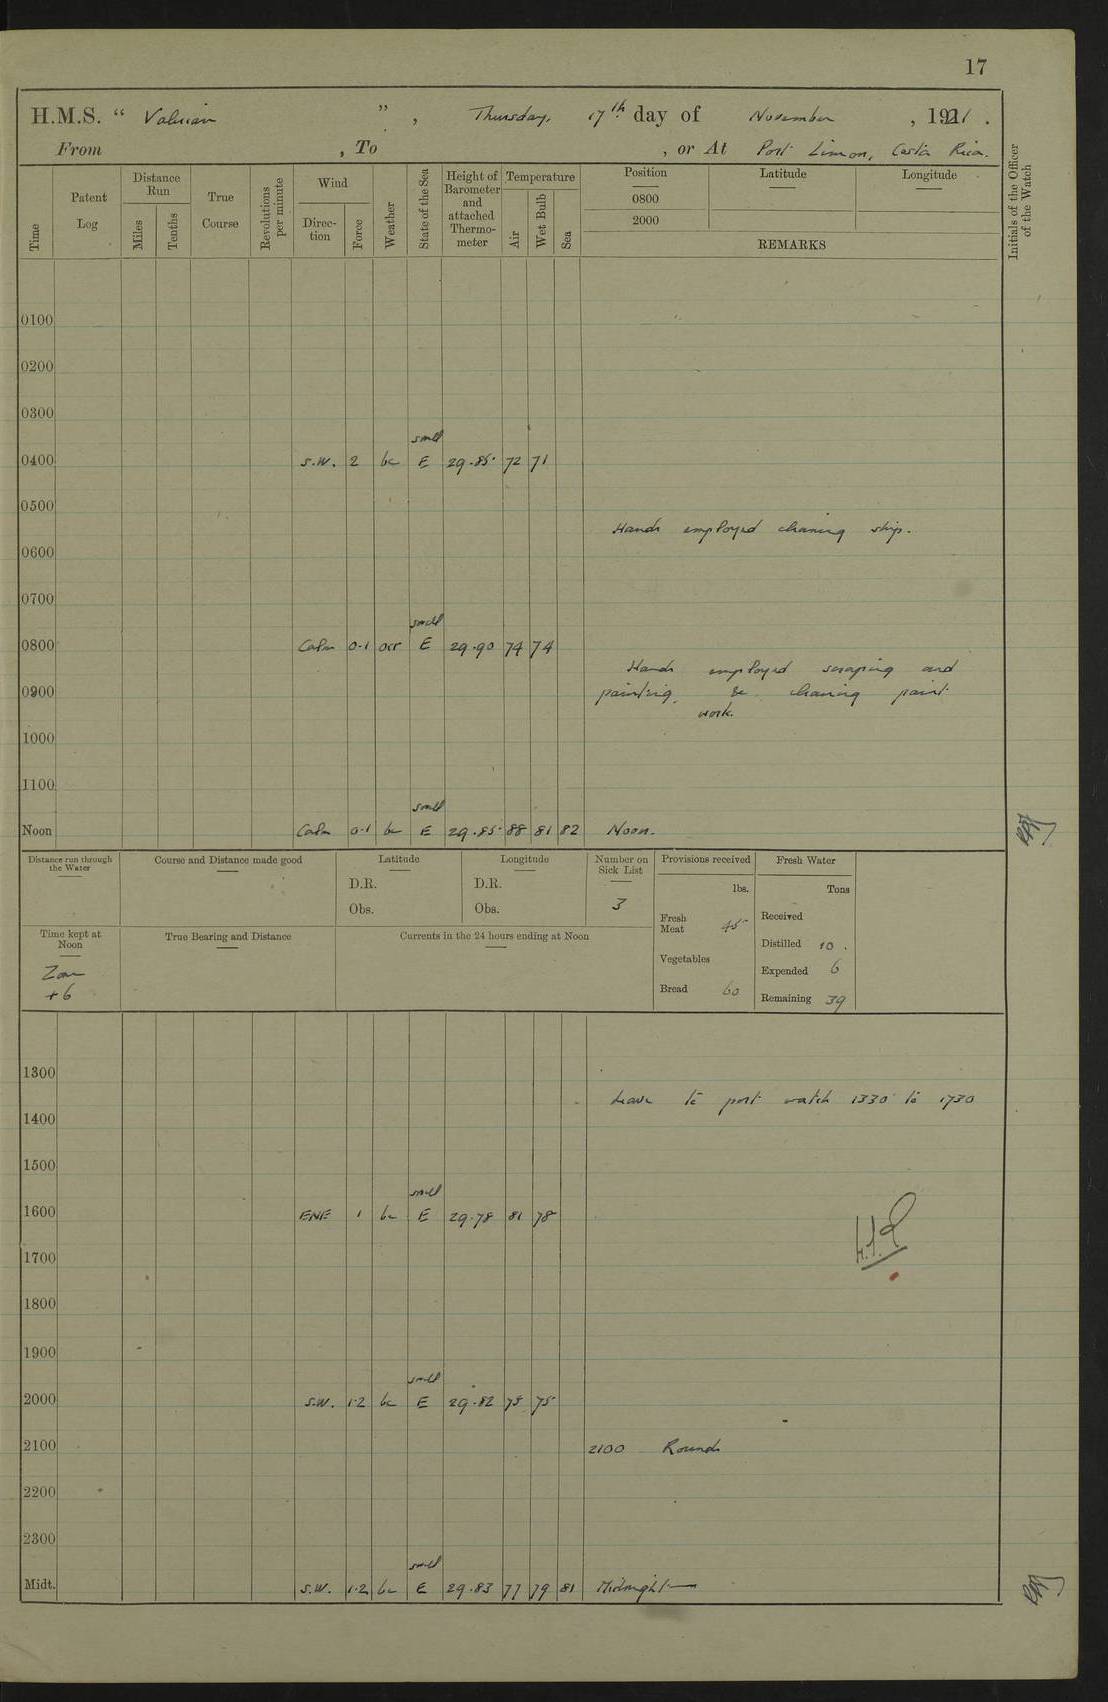 17
H.M.S. “ Valerian ” , Thursday, 17th day of November , 1921 .
From , To , or At Port Limon, Costa Rica.
Time
Patent Log
Distance Run
Miles
Tenths
True Course
Revolutions per minute
Wind
Direction
Force
Weather
State of the Sea
Height of Barometer and attached Thermometer
Temperature
Air
Wet Bulb
Sea
Position
0800
2000
Latitude
Longitude
REMARKS
Initials of the Officer of the Watch
0100
0200
0300
swell
0400 S.W. 2 bc E 29.85 72 71
0500
Hands employed cleaning ship.
0600
0700
swell
0800 Calm 0-1 ocr E 29.90 74 74
Hands employed scraping and
0900 painting & cleaning paint
work.
1000
1100
swell
Noon Calm 0-1 bc E 29.85 88 81 82 Noon.
Distance run through the Water
Course and Distance made good
Latitude
D.R.
Obs.
Longitude
D.R.
Obs.
Number on Sick List
3
Provisions received
lbs.
Fresh Meat 45
Vegetables
Bread 60
Fresh Water
Tons
Received
Distilled 10 .
Expended 6
Remaining 39
Time kept at Noon
Zone
+6
True Bearing and Distance
Currents in the 24 hours ending at Noon
1300
Leave to port watch 1330 to 1730
1400
1500
swell
1600 ENE 1 bc E 29.78 81 78
1700
1800
1900
swell
2000 S.W. 1-2 bc E 29.82 75
2100 2100 Rounds
2200
2300
swell
Midt. S.W. 1-2 bc E 29.83 77 79 81 Midnight